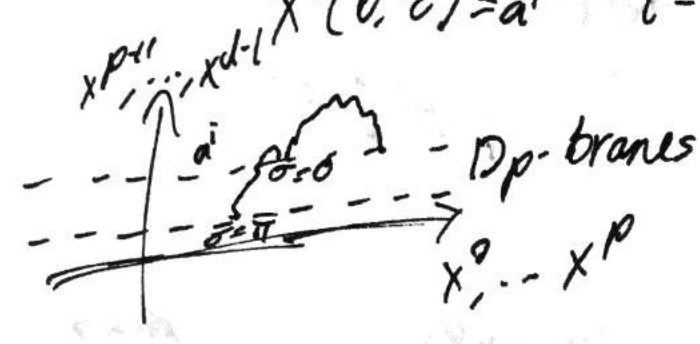 X (0, τ) = aⁱ
x^{p+1}, ..., x^{d-1}
aⁱ
σ=0
Dp-branes
σ=π
x⁰, .. x^p